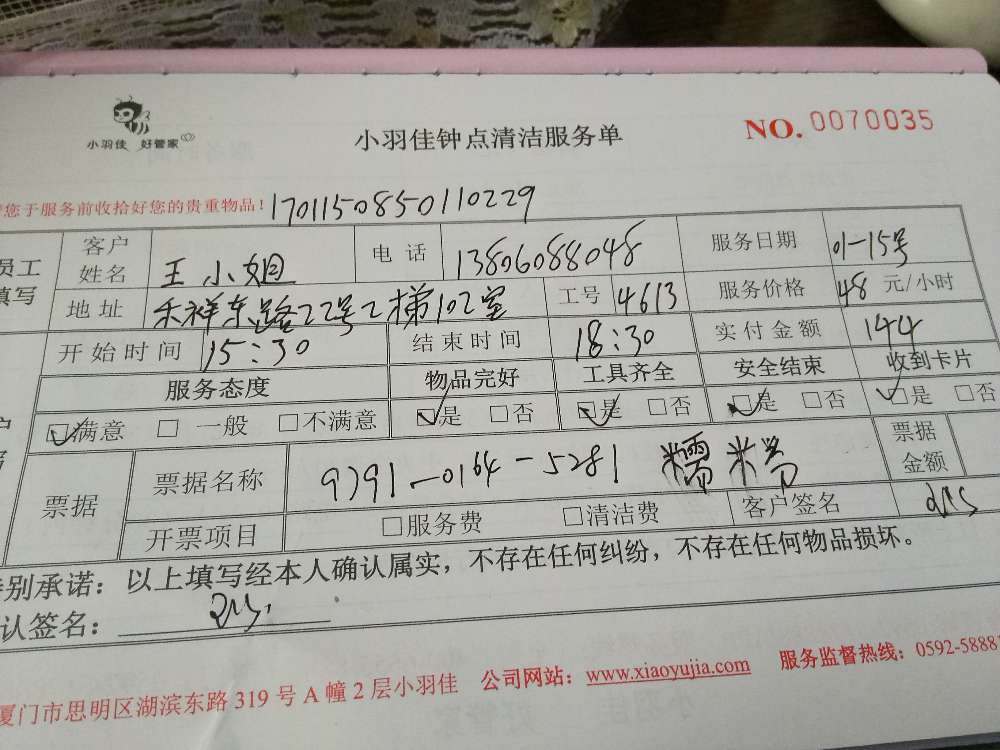 小羽佳 好管家
小羽佳钟点清洁服务单
NO. 0070035
您于服务前收拾好您的贵重物品！ 1701150850110229
员工填写 客户姓名 王小姐 电话 13806088048 服务日期 01-15号
地址 禾祥东路22号2梯102室 工号 4613 服务价格 48 元/小时
开始时间 15:30 结束时间 18:30 实付金额 144
服务态度 物品完好 工具齐全 安全结束 收到卡片
☑满意 □ 一般 □不满意 ☑是 □否 ☑是 □否 ☑是 □否 ☑是 □否
票据 票据名称 9791-0164-5281 糯米 票据金额
开票项目 □服务费 □清洁费 客户签名
特别承诺：以上填写经本人确认属实，不存在任何纠纷，不存在任何物品损坏。
认签名：
厦门市思明区湖滨东路 319 号 A 幢 2 层小羽佳 公司网站：www.xiaoyujia.com 服务监督热线：0592-5888